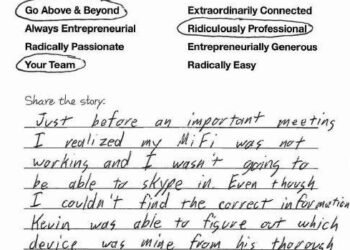 Go Above & Beyond Extraordinarily Connected
Always Entrepreneurial Ridiculously Professional
Radically Passionate Entrepreneurially Generous
Your Team Radically Easy
Share the story:
Just before an important meeting
I realized my MiFi was not
working and I wasn't going to
be able to skype in. Even though
I couldn't find the correct information
Kevin was able to figure out which
device was mine from his thorough